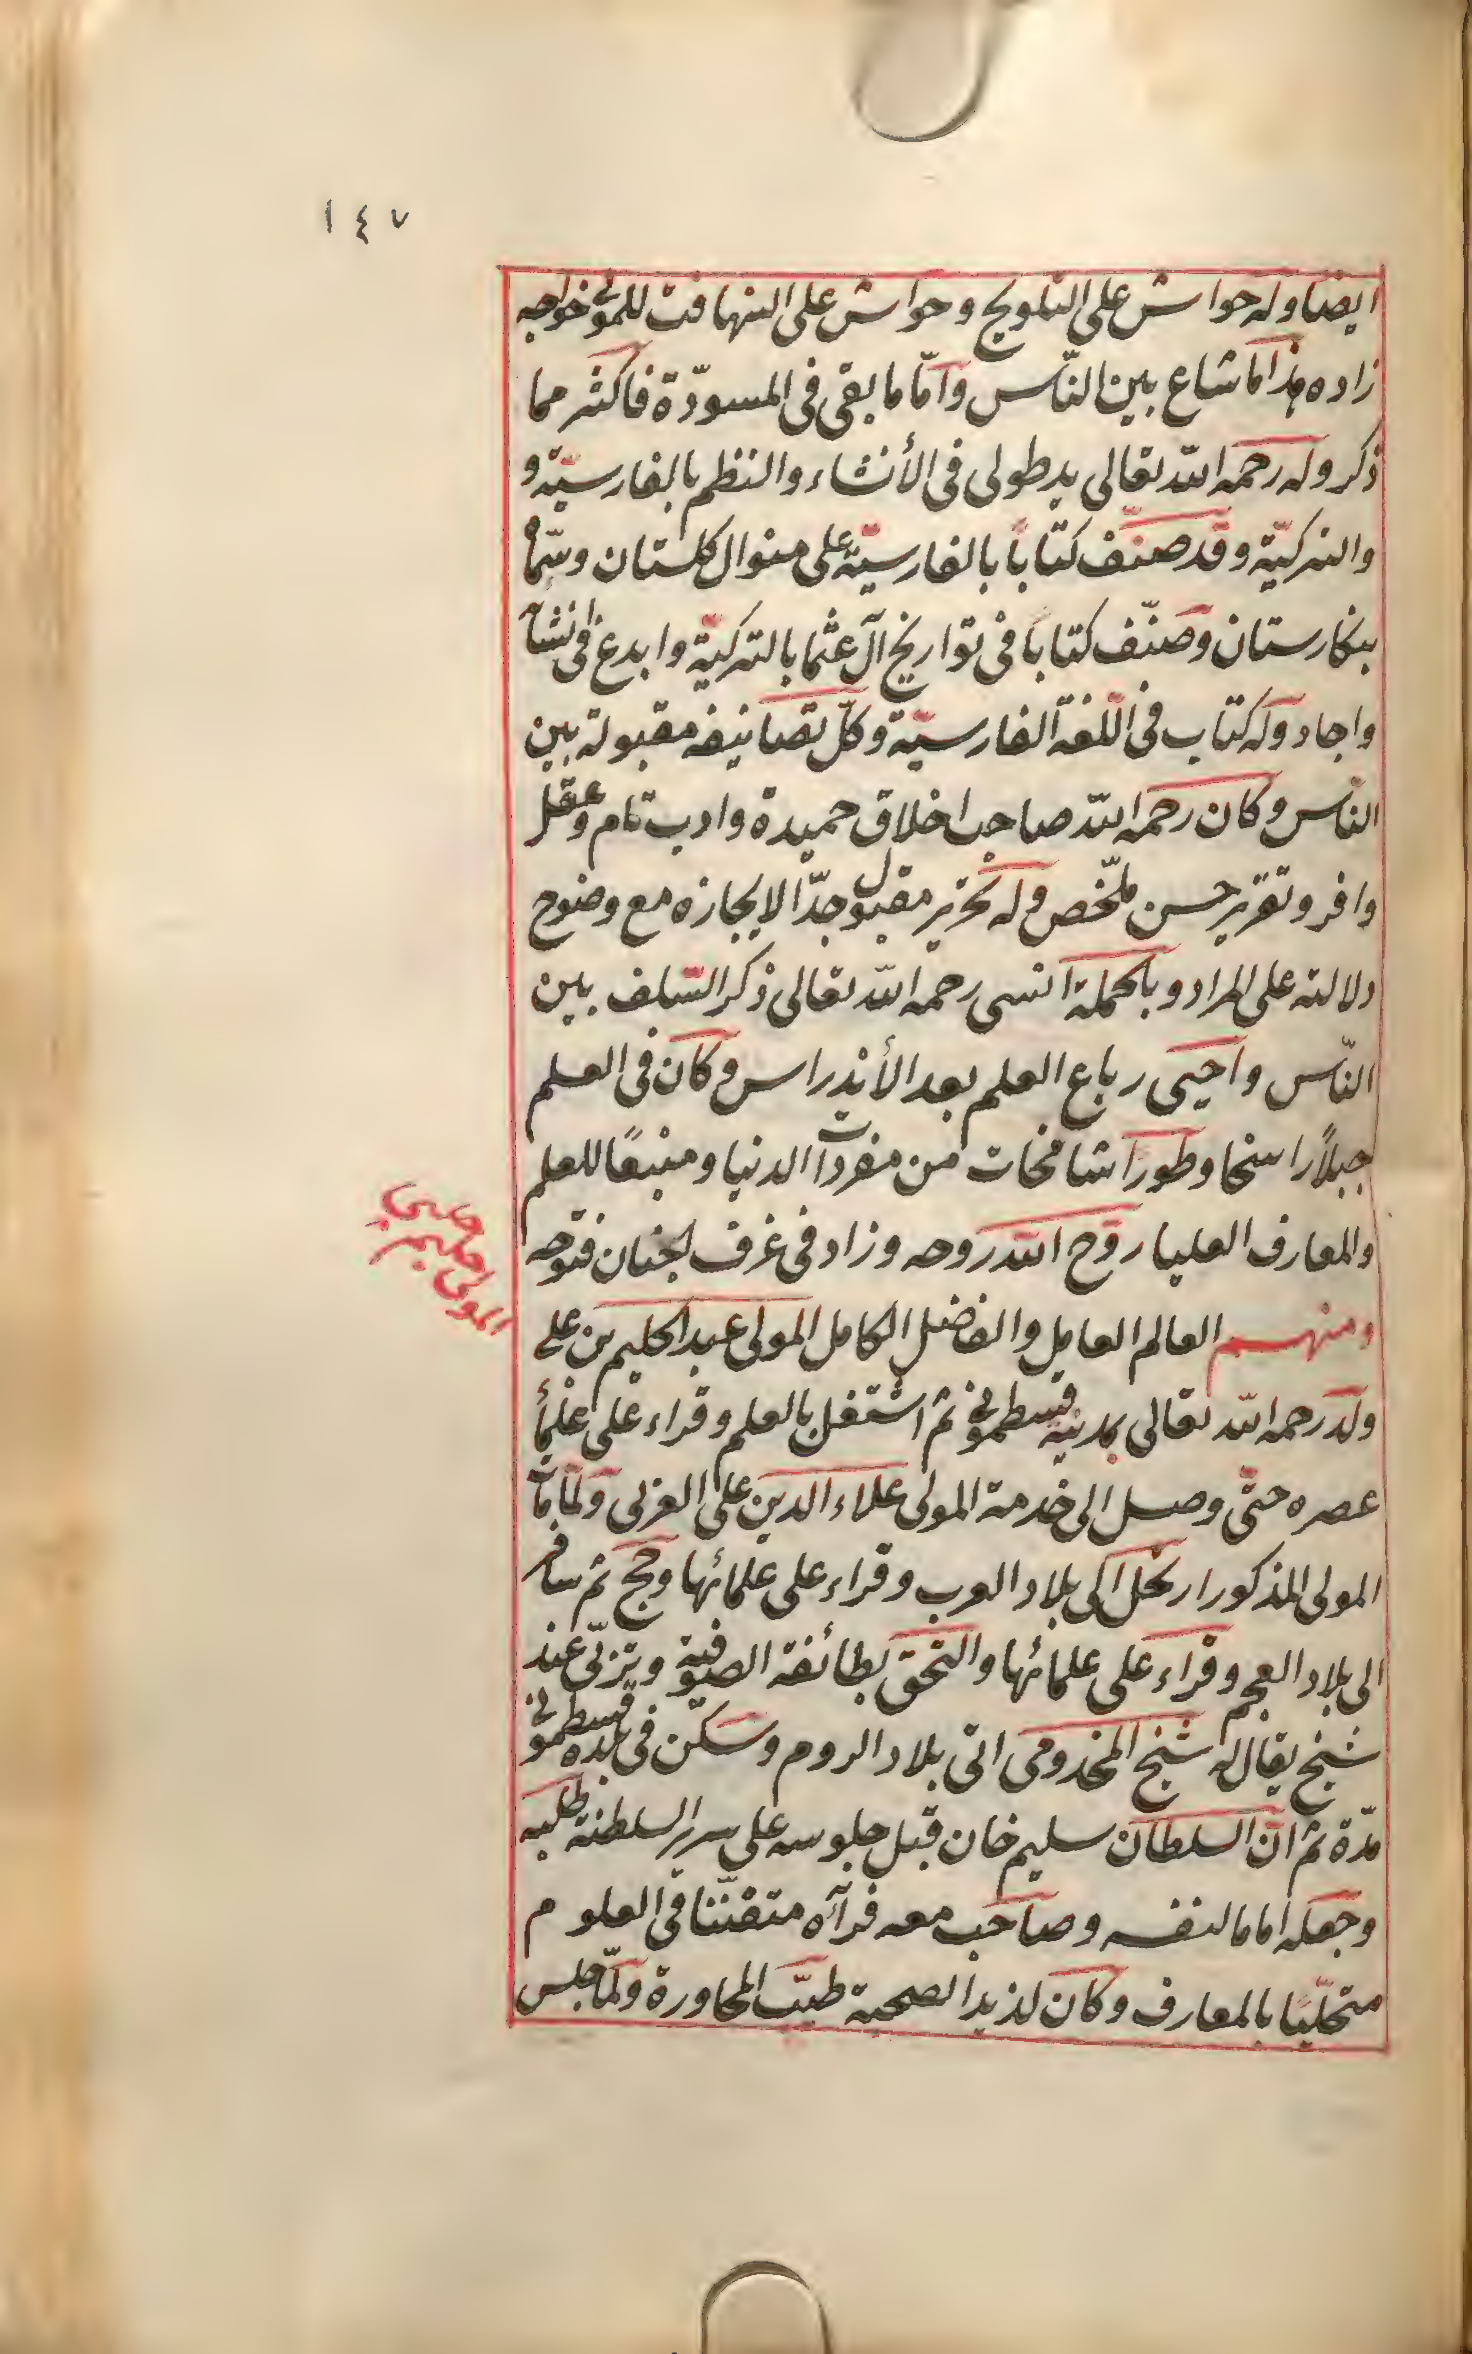 ١٤٧
ايضا وله حواش على التلويح وحواش على التهافت للمولى خواجه
زاده هذا ما شاع بين النّاس وامّا ما بقى فى المسودّة فاكثر مما
ذكر وله رحمه الله تعالى يد طولى فى الأنشاء والنظم بالفارسيّة و
والتركيّة وقد صنّف كتاباً بالفارسيّة على منوال كلستان وسمّاه
بنكارستان وصنّف كتاباً فى تواريخ آل عثما بالتركيّة وابدع فى انشائه
واجاد وله كتاب فى اللّغة الفارسيّة وكلّ تصانيفه مقبولة بين
النّاس وكان رحمه الله صاحب اخلاق حميدة وادب تام وعقل
وافر وتقرير حسن ملّخص وله تحرير مقبول جدّا لايجازه مع وضوح
دلالته على المراد وبالجملة انسى رحمه الله تعالى ذكر السّلف بين
النّاس واحيى رباع العلم بعد الأندراس وكان فى العلم
جبلاً راسخا وطورا شامخات من مفردات الدنيا ومنبعًا للعلم
والمعارف العليا روّح الله روحه وزاد فى غرف لجنان فتوحه
ومنهم العالم العامل والفاضل الكامل المولى عبد الحليم بن على
ولد رحمه الله تعالى بمدينة قسطمونى ثم اشتغل بالعلم وقراء على علمأ
عصره حتّى وصل الى خدمة المولى علاء الدين على العربى ولمّا مات
المولى المذكور ارتحل الى بلاد العرب وقراء على علمائها وحج ثم سافر
الى بلاد العجم وقراء على علمائها والتحق بطائفة الصوفية وتربّى عند
شيخ يقال له شيخ المخدومى اتى بلاد الروم وسكن فى بلده قسطمونى
مدّة ثم ان السلطان سليم خان قبل جلوسه على سرير السلطنة طلبه
وجعله اماما لنفسه وصاحب معه فرآه متفنّنا فى العلوم
متحلّيا بالمعارف وكان لذيذ الصحبة طيّب المحاورة ولمّا جلس
المولى حليم چلبى